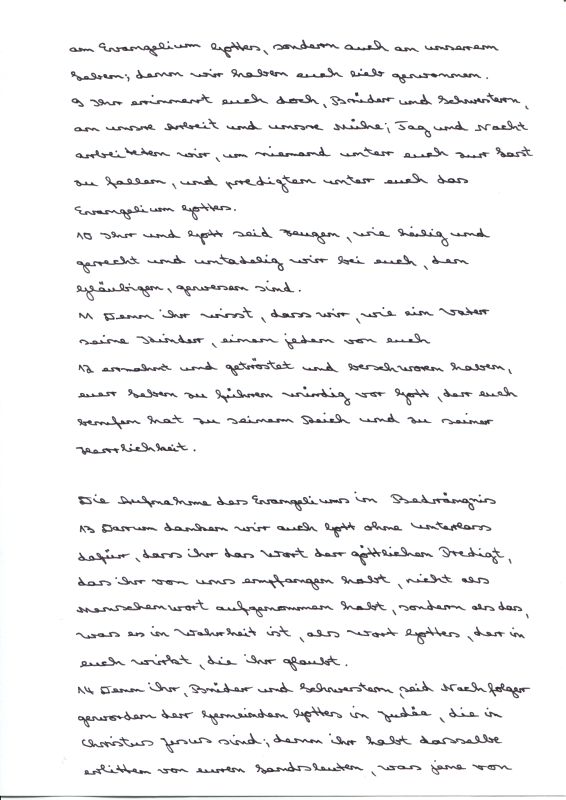 am Evangelium Gottes, sondern auch am unserem
Leben; denn wir haben euch lieb gewonnen.
9 Ihr erinnert euch doch, Brüder und Schwestern,
an unsre Arbeit und unsre Mühe; Tag und Nacht
arbeiteten wir, um niemand unter euch zur Last
zu fallen, und predigten unter euch das
Evangelium Gottes.
10 Ihr und Gott seid Zeugen, wie heilig und
gerecht und untadelig wir bei euch, den
Gläubigen, gewesen sind.
11 Denn ihr wisst, dass wir, wie ein Vater
seine Kinder, einen jeden von euch
12 ermahnt und getröstet und beschworen haben,
euer Leben zu führen würdig vor Gott, der euch
berufen hat zu seinem Reich und zu seiner
Herrlichkeit.
Die Aufnahme des Evangeliums in Bedrängnis
13 Darum danken wir auch Gott ohne Unterlass
dafür, dass ihr das Wort der göttlichen Predigt,
das ihr von uns empfangen habt, nicht als
Menschenwort aufgenommen habt, sondern als das,
was es in Wahrheit ist, als Wort Gottes, der in
euch wirkt, die ihr glaubt.
14 Denn ihr, Brüder und Schwestern, seid Nachfolger
geworden der Gemeinden Gottes in Judäa, die in
Christus Jesus sind; denn ihr habt dasselbe
erlitten von euren Landsleuten, was jene von